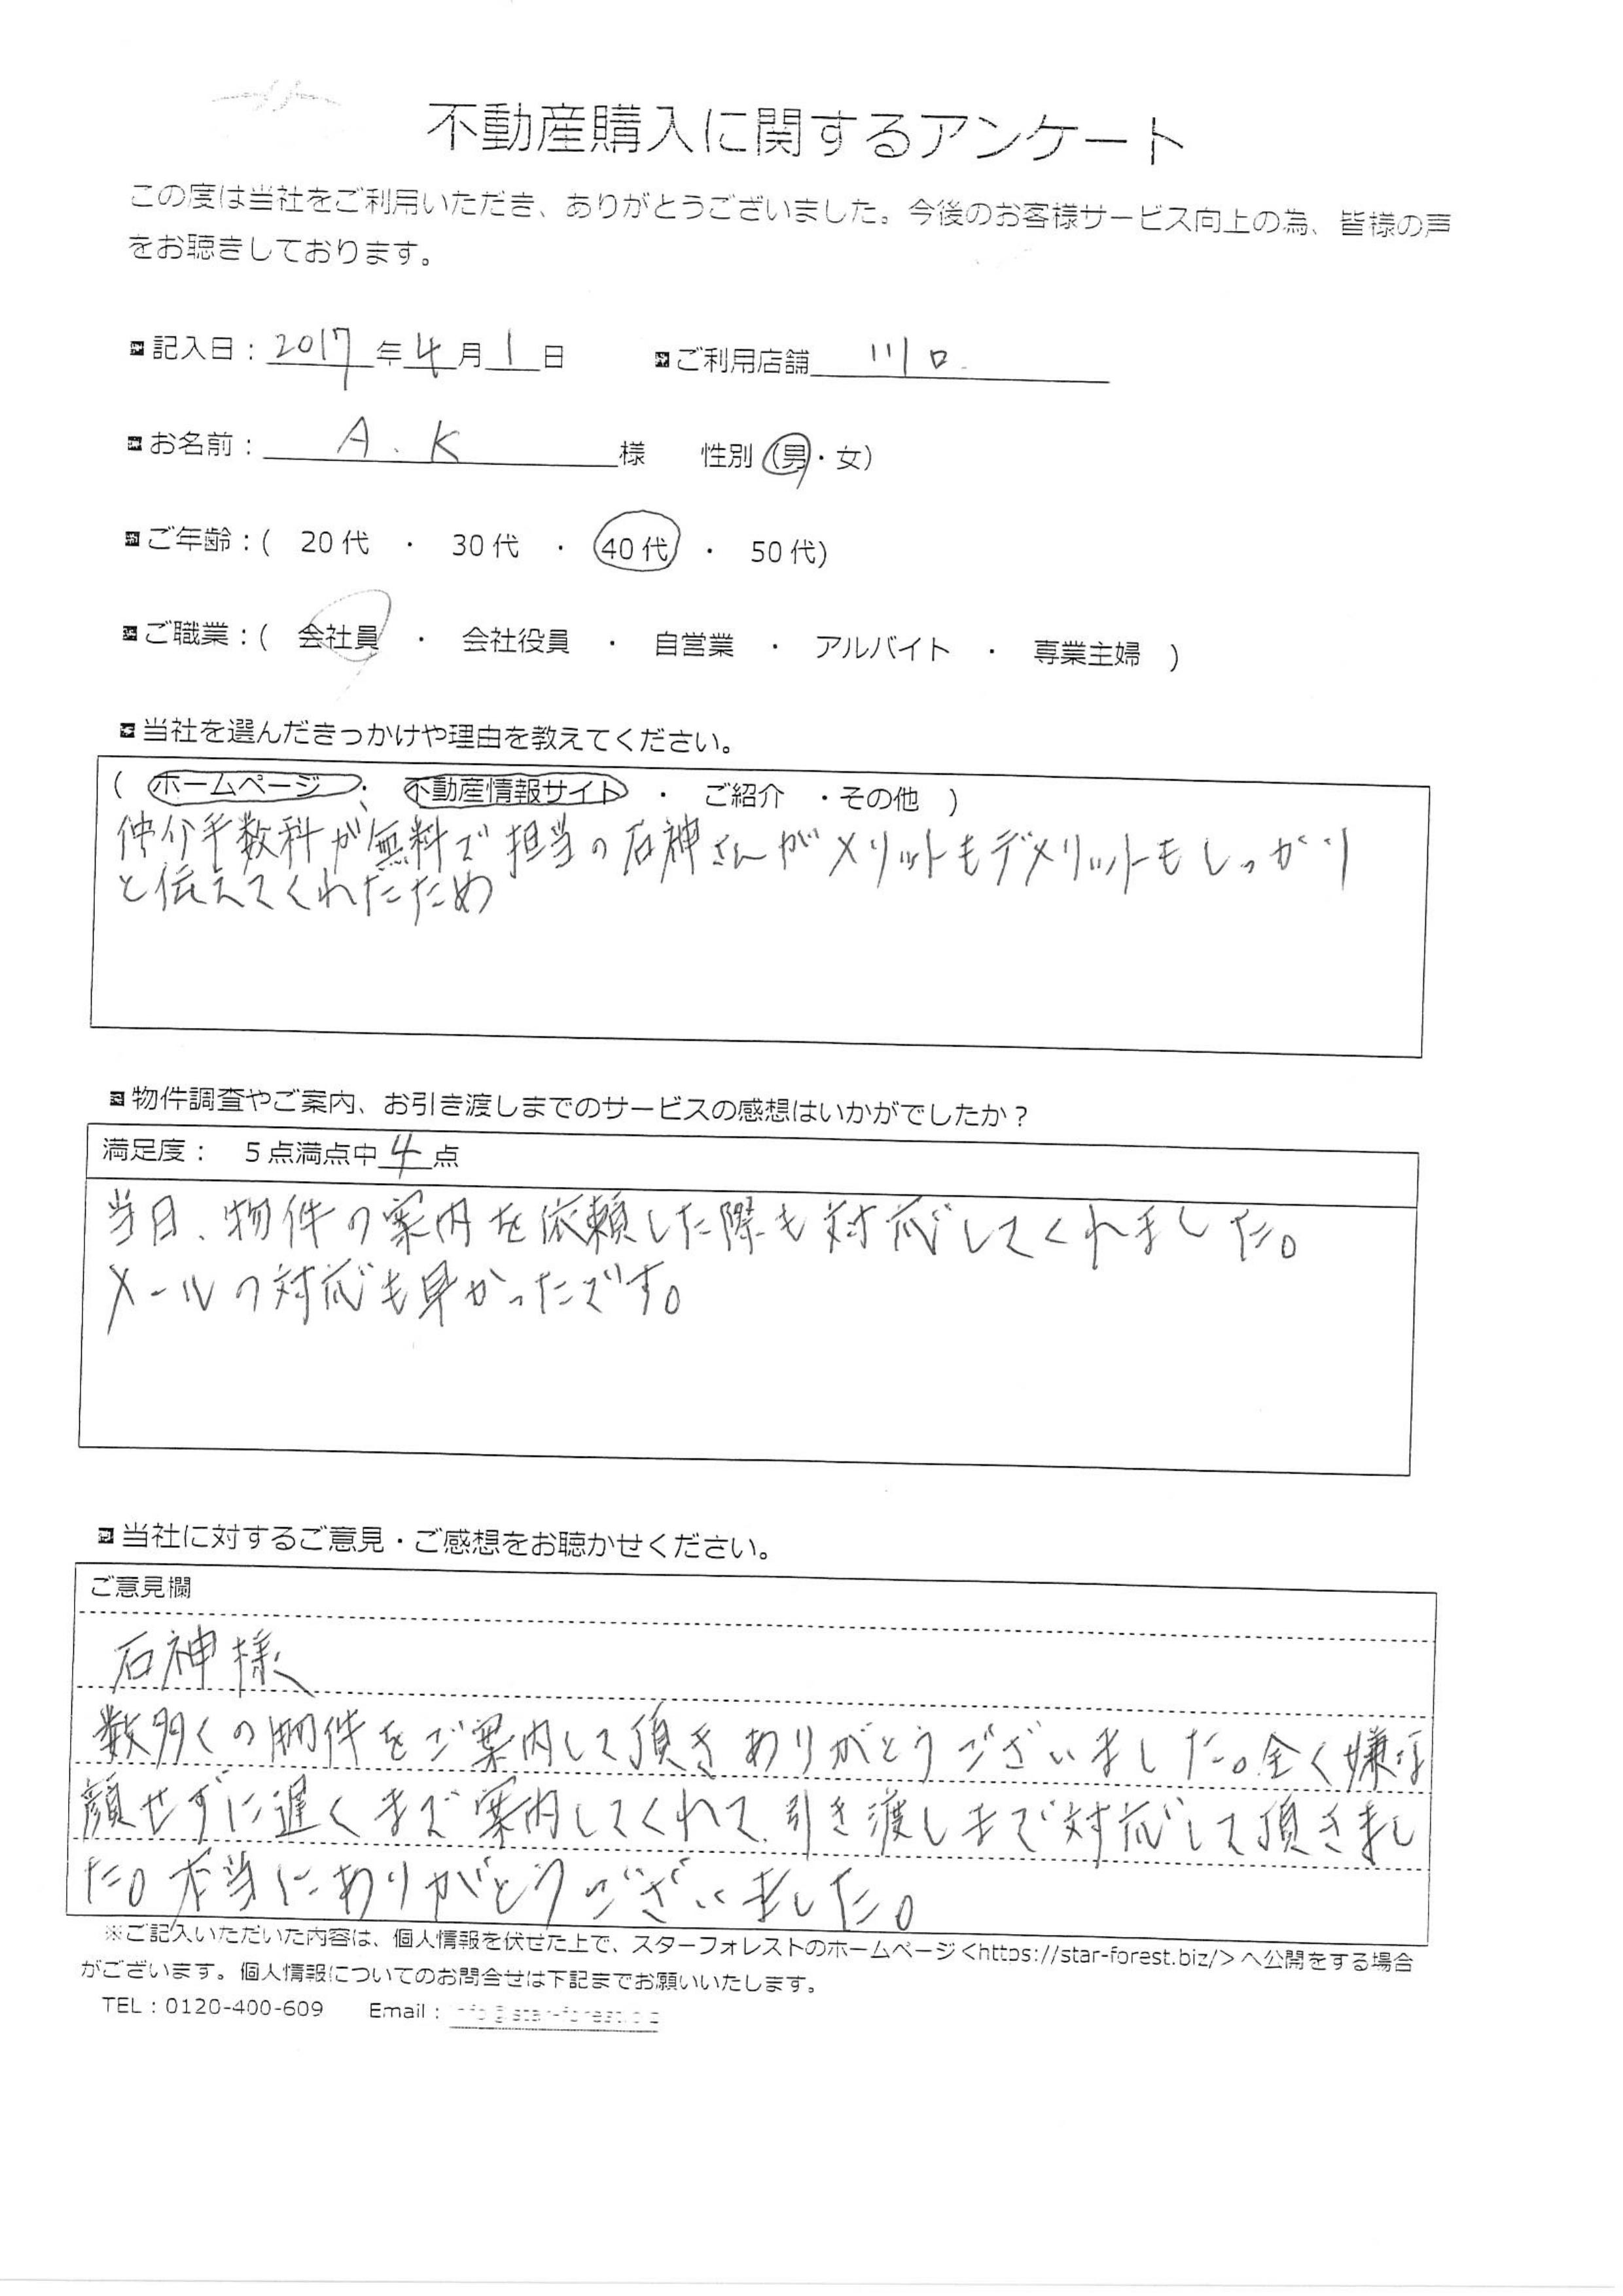 不動産購入に関するアンケート
この度は当社をご利用いただき、ありがとうございました。今後のお客様サービス向上の為、皆様の声
をお聴きしております。
記入日：2017年4月1日 ご利用店舗 川口
お名前：A.K様 性別（男・女）
ご年齢：( 20代 ・ 30代 ・ 40代 ・ 50代)
ご職業：( 会社員 ・ 会社役員 ・ 自営業 ・ アルバイト ・ 専業主婦 )
当社を選んだきっかけや理由を教えてください。
( ホームページ ・ 不動産情報サイト ・ ご紹介 ・その他 )
仲介手数料が無料で担当の石神さんがメリットもデメリットもしっかり
と伝えてくれたため
物件調査やご案内、お引き渡しまでのサービスの感想はいかがでしたか？
満足度： 5点満点中4点
当日、物件の案内を依頼した際も対応してくれました。
メールの対応も早かったです。
当社に対するご意見・ご感想をお聴かせください。
ご意見欄
石神様
数多くの物件をご案内して頂きありがとうございました。全く嫌な
顔せずに遅くまで案内してくれて、引き渡しまで対応して頂きまし
た。本当にありがとうございました。
※ご記入いただいた内容は、個人情報を伏せた上で、スターフォレストのホームページ<https://star-forest.biz/>へ公開をする場合
がございます。個人情報についてのお問合せは下記までお願いいたします。
TEL：0120-400-609 Email：